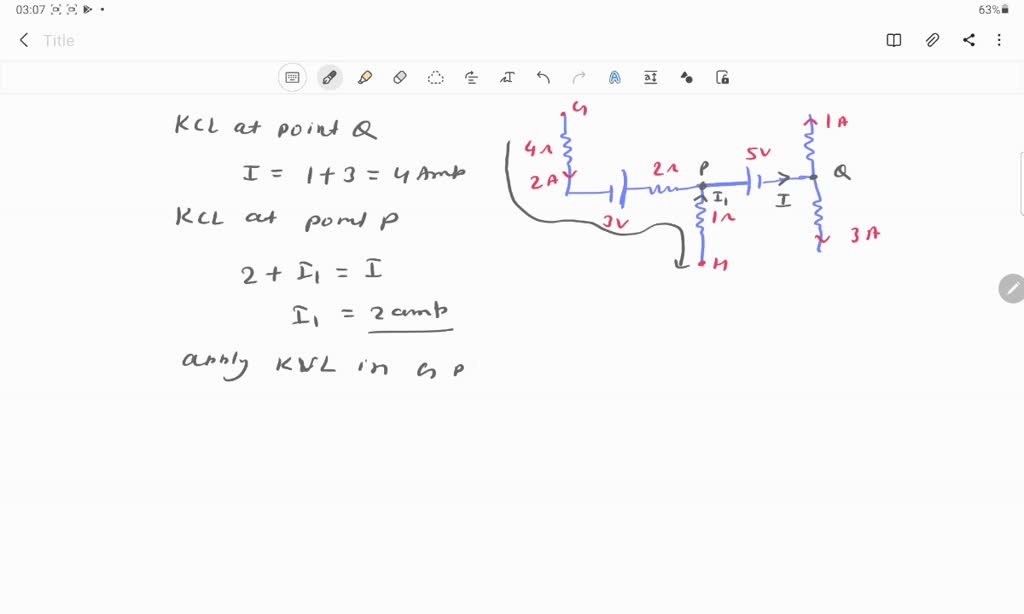 03:07
63%
Title
KCL at point Q
I = 1 + 3 = 4 Amp
KCL at point P
2 + I₁ = I
I₁ = 2 amp
apply KVL in G P
G
4Ω
2A
3V
2Ω
P
I₁
1Ω
H
5V
I
1A
Q
3A